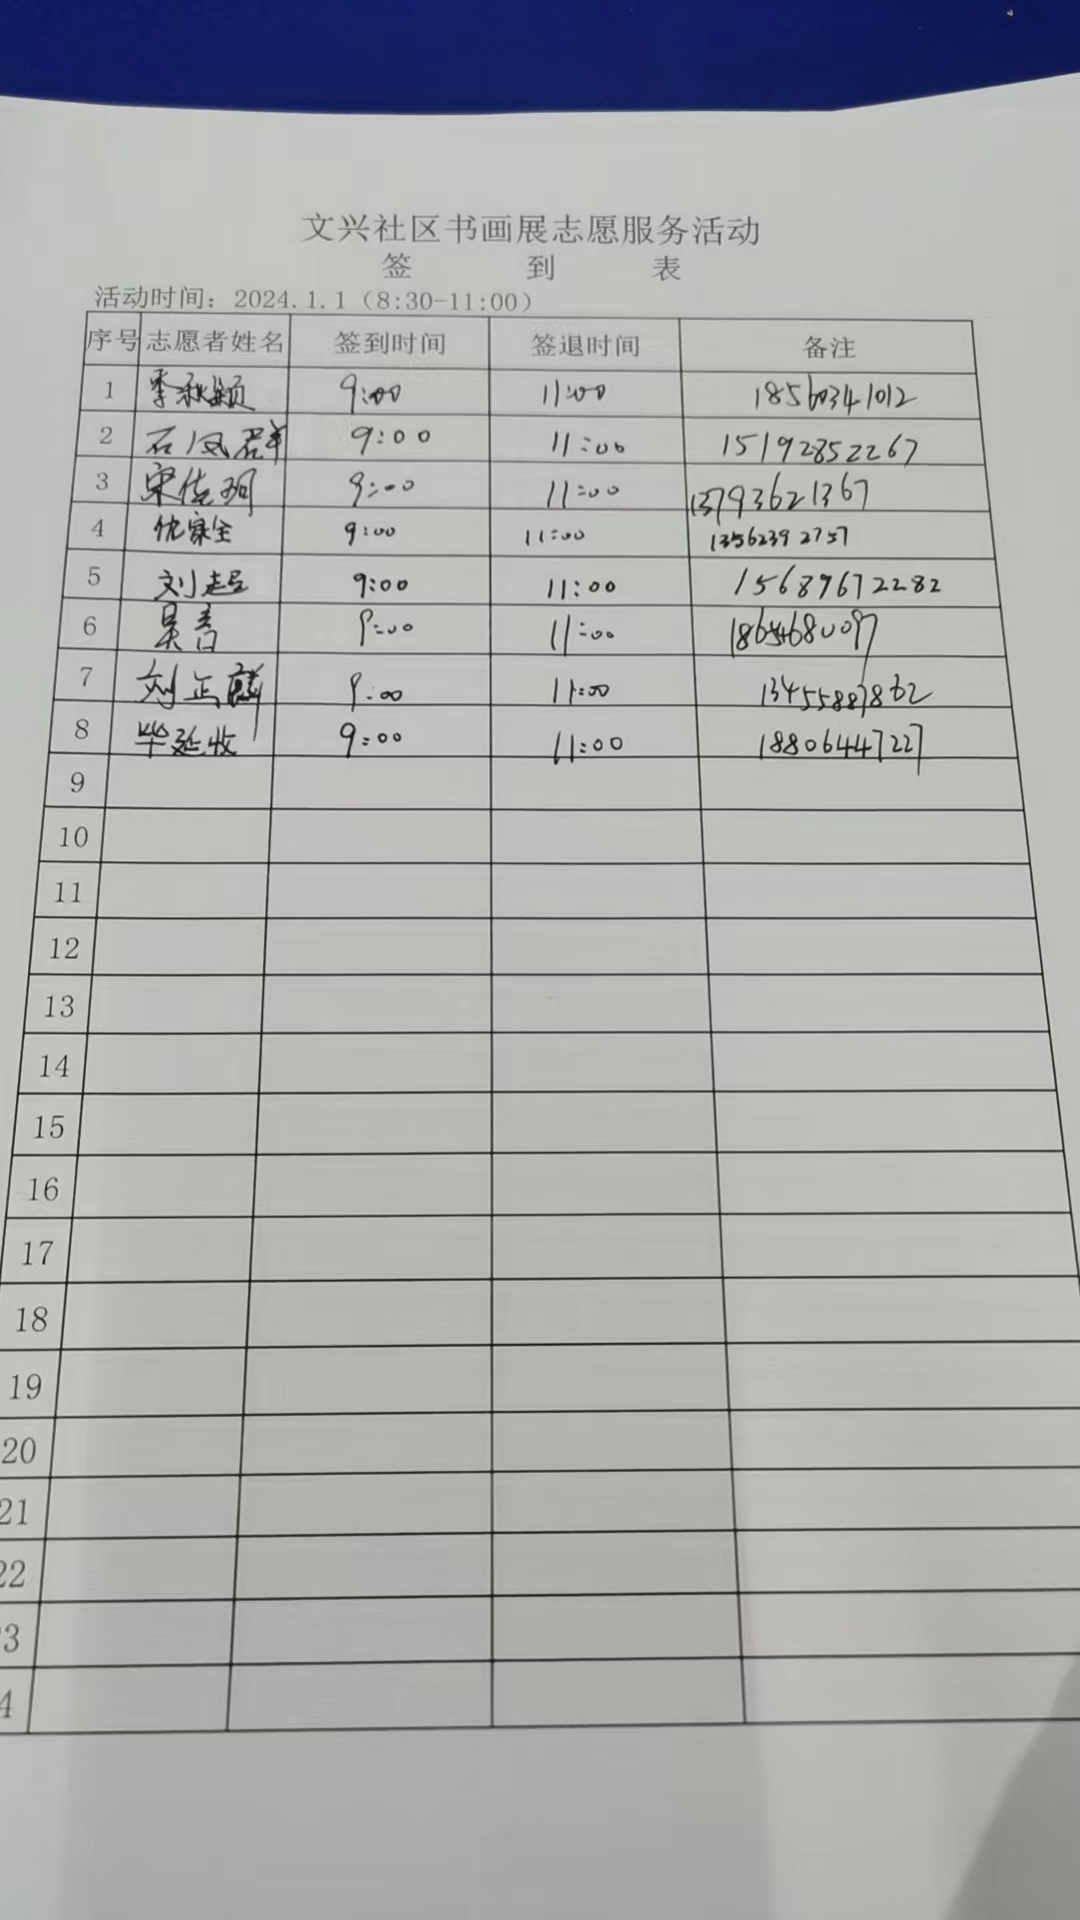 文兴社区书画展志愿服务活动
签 到 表
活动时间：2024.1.1（8:30-11:00）
序号 志愿者姓名 签到时间 签退时间 备注
1 李秋颖 9:00 11:00 18560341012
2 石凤群 9:00 11:00 15192852267
3 宋佳珂 9:00 11:00 13793621367
4 9:00 11:00 13562392757
5 刘超 9:00 11:00 15689672282
6 吴 9:00 11:00 18654680097
7 刘正麟 9:00 11:00 13455887862
8 毕延收 9:00 11:00 18806447227
9
10
11
12
13
14
15
16
17
18
19
20
21
22
3
4